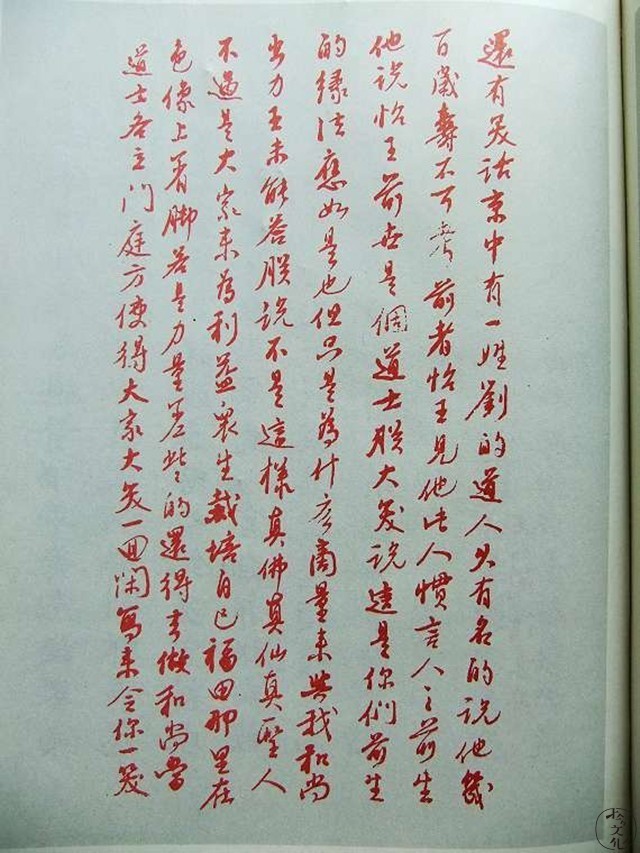 還有笑話京中有一姓劉的道人久有名的說他幾
百歲壽不可考前者怡王見他此人慣言人之前生
他說怡王前世是個道士朕大笑說這是你們前生
的緣法應如是也但只是為什麼商量來與我和尚
出力王未能答朕說不是這樣真佛真仙真聖人
不過是大家來為利益眾生栽培自己福田那里在
色像上着腳若是力量差些的還得去做和尚當
道士各立門庭方使得大家大笑一回閑寫來令你一笑